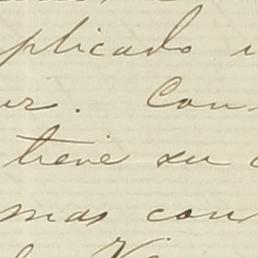 plicado
ur. Con
tiene su
mas con